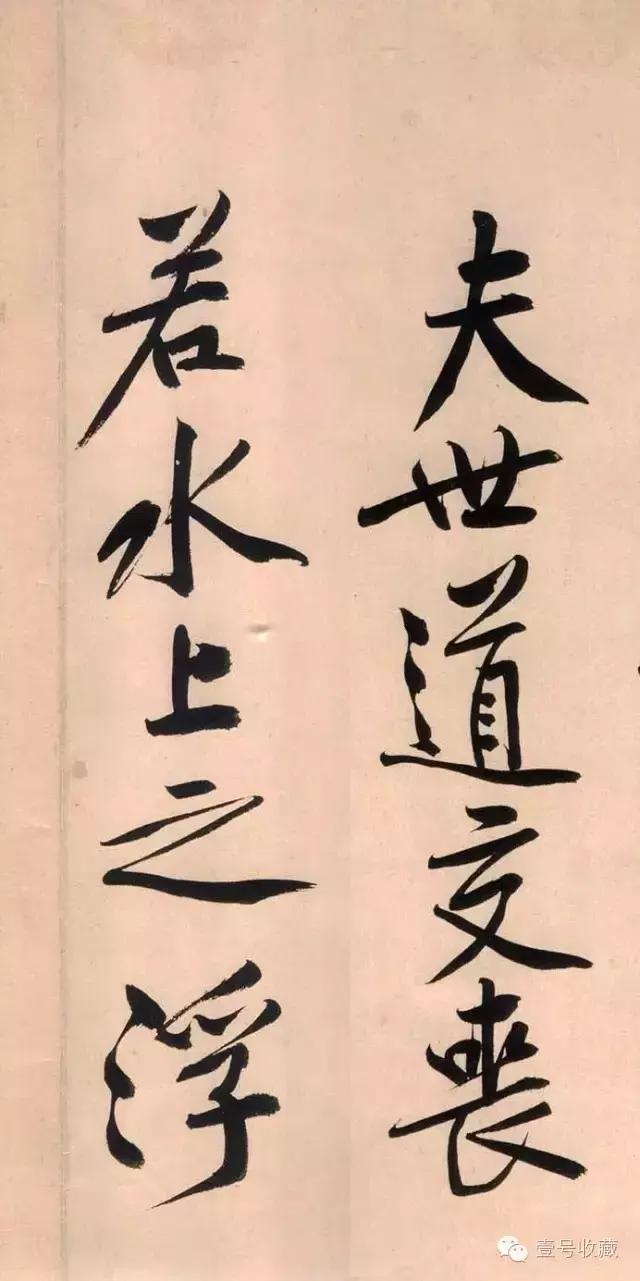 夫世道交丧
若水上之浮
壹号收藏